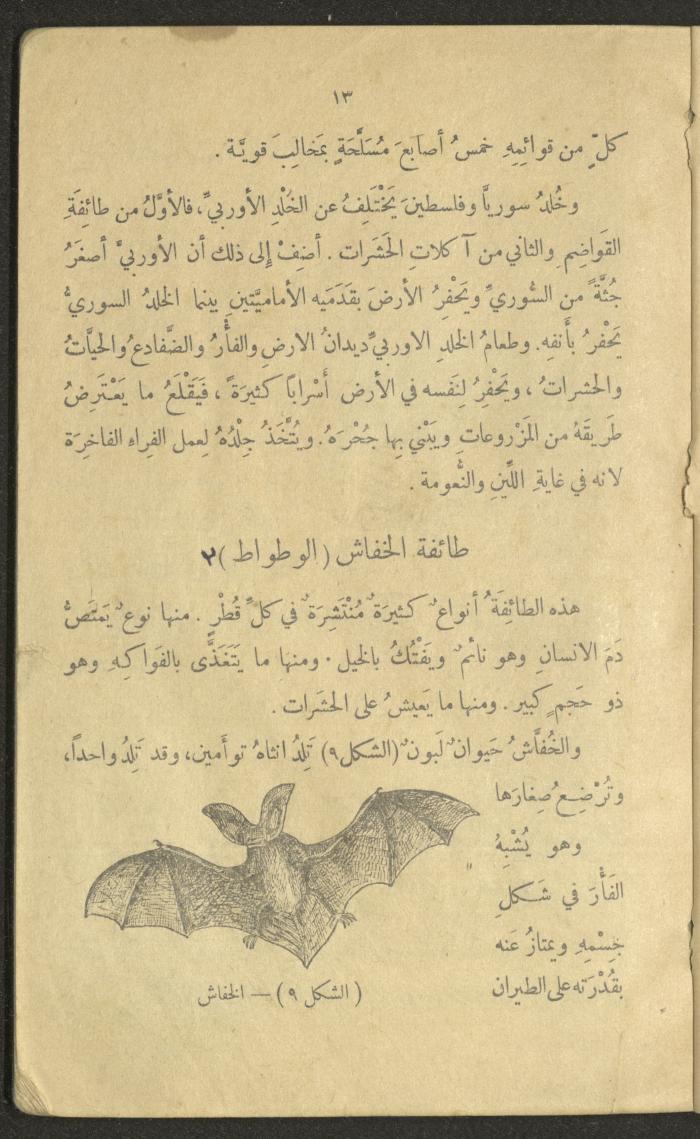 ١٣
كلّ من قوائمِهِ خمسُ أصابعَ مُسَلَّحَةٍ بمَخالِبَ قويَّة .
وخُلدُ سوريَّا وفلسطينَ يَخْتَلِفُ عن الخُلْدِ الأوربيِّ، فالأوَّلُ من طائِفَةِ
القَواضِمِ والثاني من آكلاتِ الحَشَرات . أضِفْ إلى ذلك أن الأوربيَّ أصغَرُ
جُثَّةً من السُّوريِّ ويَحْفِرُ الأرضَ بقَدَمَيه الأماميَّتَينِ بينما الخلدُ السوريُّ
يَحْفرُ بأَنفهِ. وطعامُ الخلدِ الاوربيِّ ديدانُ الارضِ والفأرُ والضَّفادعُ والحيَّاتُ
والحشراتُ ، ويَحْفِرُ لِنَفسه في الأرض أَسْرابًا كثيرَةً ، فَيَقْلَعُ ما يَعْتَرِضُ
طَريقَهُ من المَزْروعاتِ ويَبْني بِها جُحْرَهُ. ويُتَّخَذُ جِلْدُهُ لِعمل الفِراءِ الفاخِرَة
لانه في غايةِ اللِّينِ والنُّعومة .
طائفة الخفاش ( الوطواط ) ٢
هذه الطائِفَةُ أنواعٌ كثيرَةٌ مُنْتَشِرَةٌ في كلِّ قُطْرٍ . منها نوعٌ يَمتَصُّ
دَمَ الانسانِ وهو نائمٌ ويَفْتُكُ بالخيل . ومنها ما يَتَغَذَّى بالفَواكِهِ وهو
ذو حَجمٍ كبير . ومنها ما يَعيشُ على الحشَرات .
والخُفَّاشُ حَيوانٌ لَبونٌ (الشكل ٩) تَلِدُ انثاهُ توأمين، وقد تَلِدُ واحداً،
وتُرْضِعُ صِغارَها
وهو يُشْبِهُ
الفَأْرَ في شَكلِ
جِسْمِهِ ويمتازُ عَنه
بقُدْرَته على الطيران
( الشكل ٩ ) — الخفاش